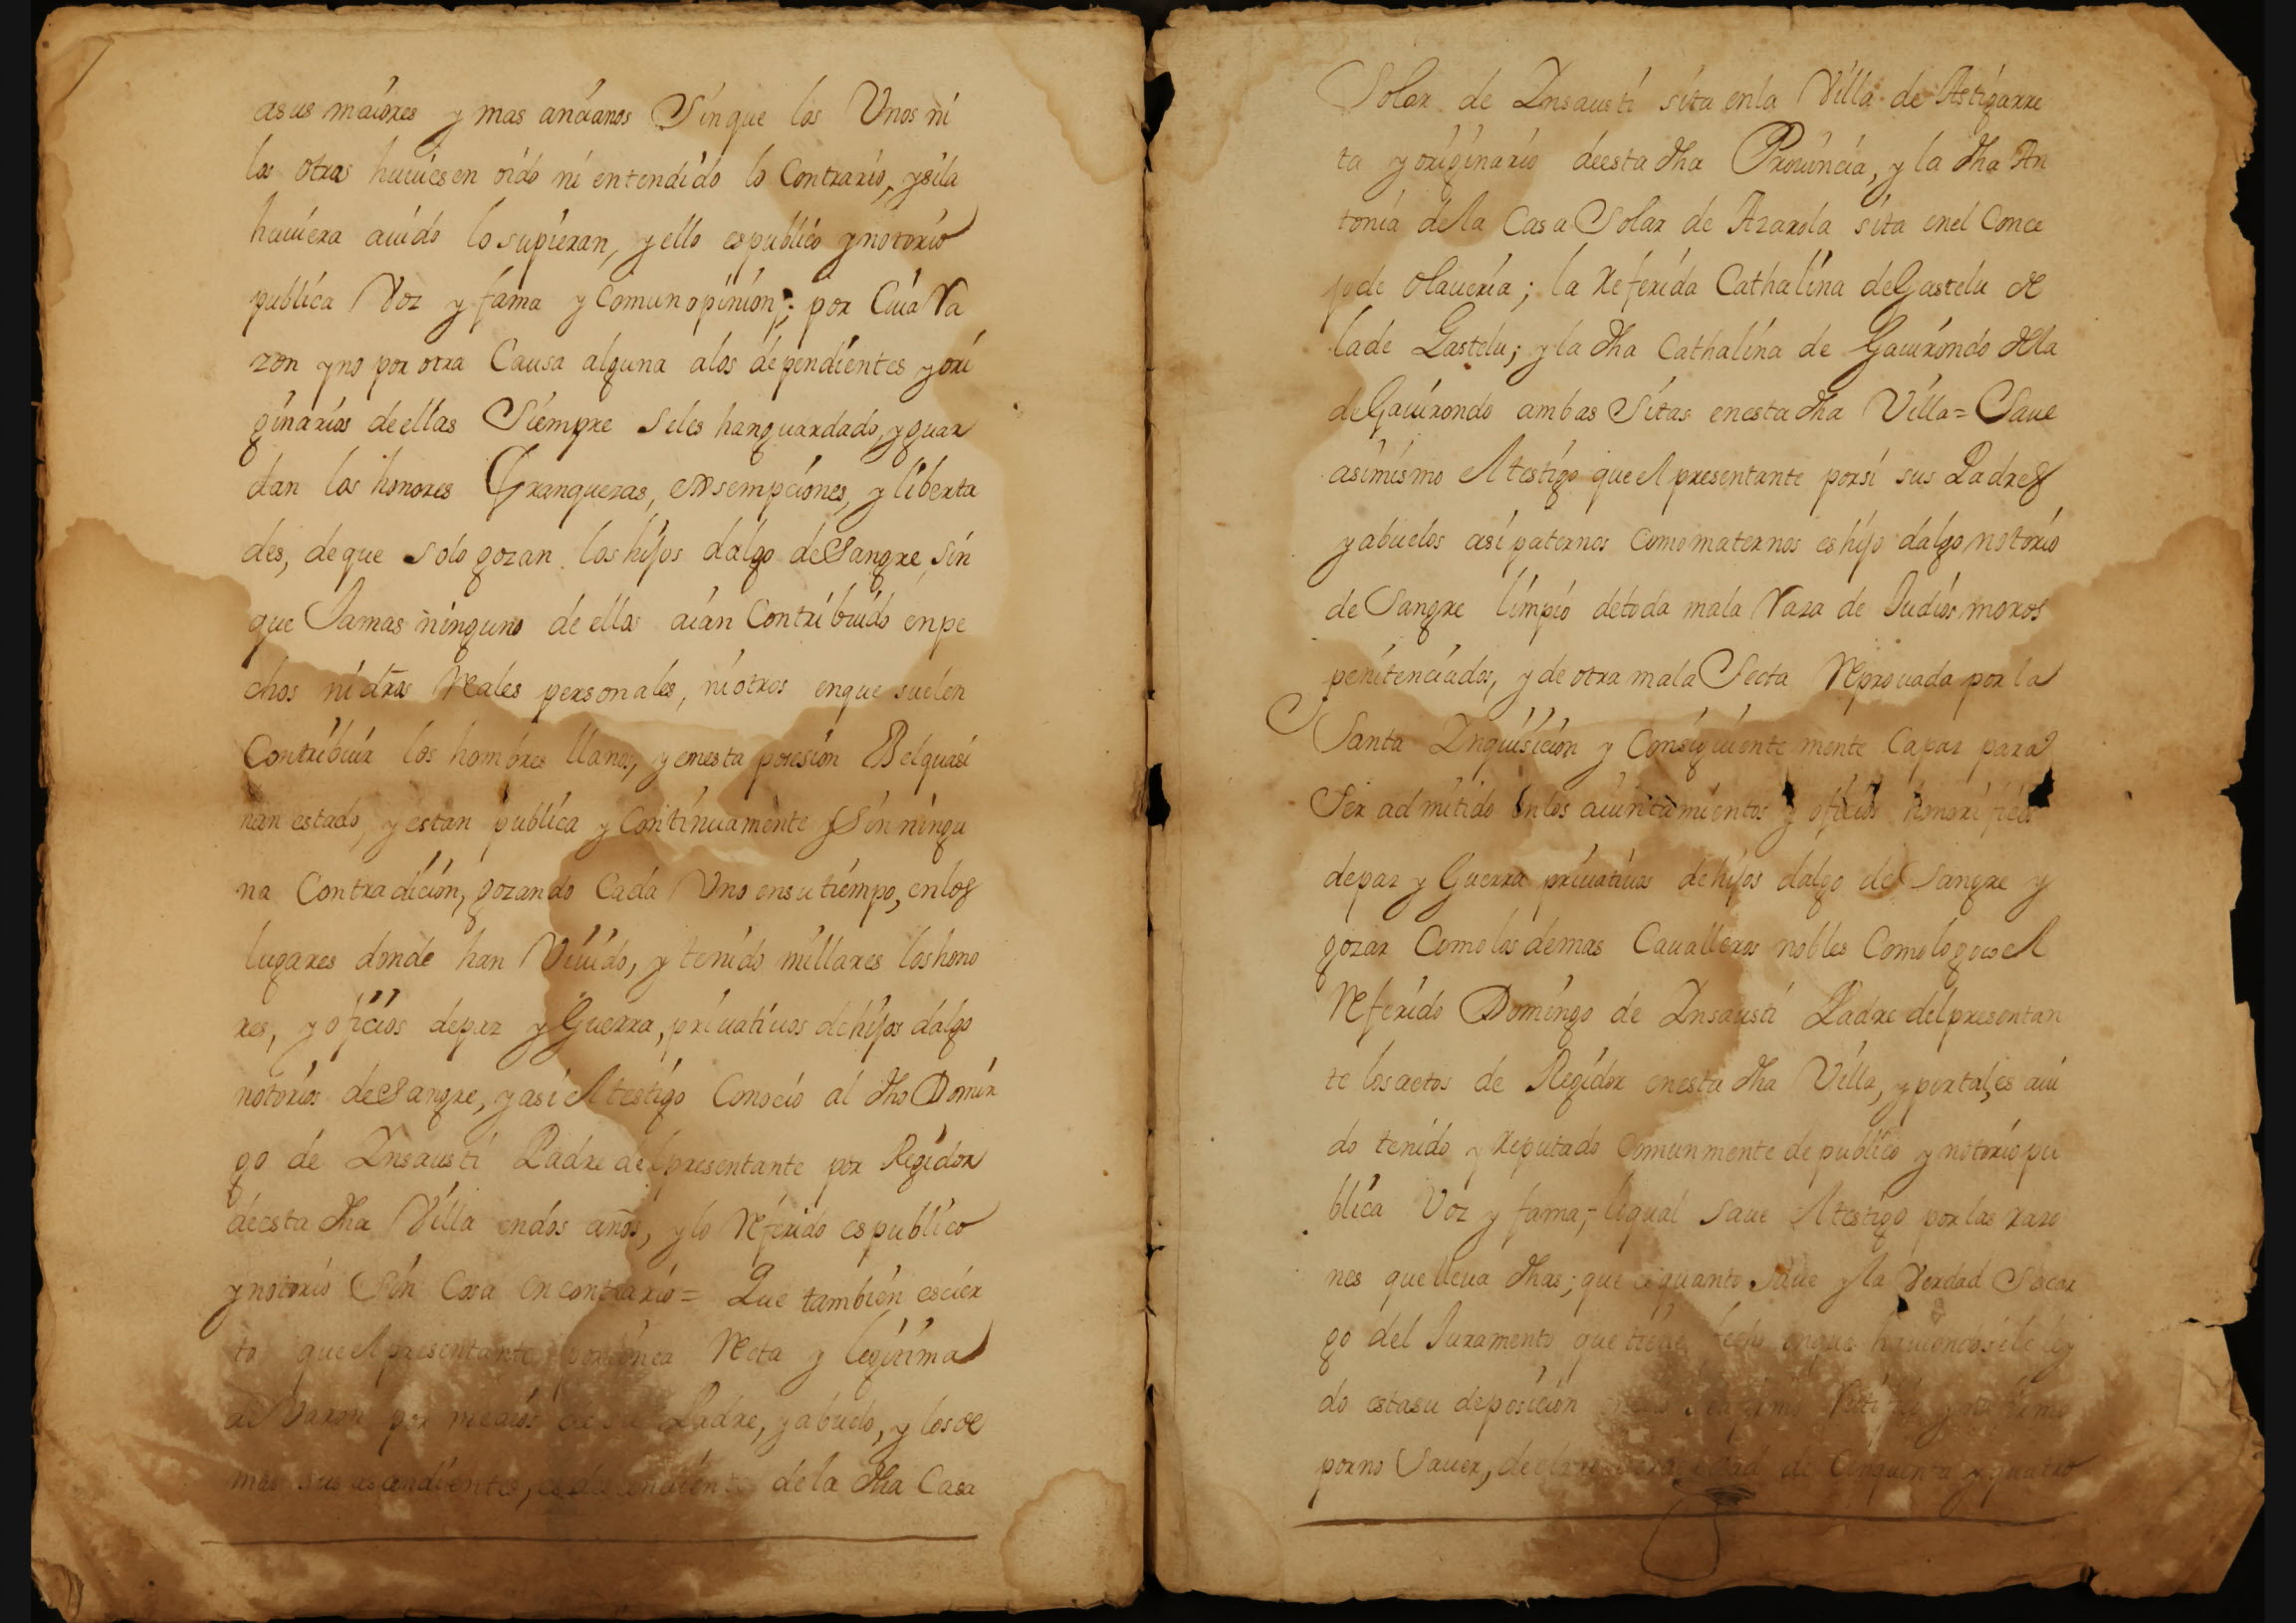 asus maiores y mas ancianos Sinque los Unos ni
los otros huuiesen oido ni entendido lo Contrario, ysila
huuiera auido lo supieran, y ello es publico y notorio
publica Voz y fama y Comun opinion; por Cuia Ra
zon y no por otra Causa alguna alos dependientes y ori
ginarios de ellas Siempre seles han guardado, y guar
dan los honores Franquezas, exsempciones, y liberta
des, de que solo gozan los hijos dalgo de Sangre, sin
que Jamas ninguno de ellos aian Contribuido en pe
chos ni dros Reales personales, ni otros en que suelen
Contribuir los hombres llanos, y en esta posesion Velquasi
han estado, y estan publica y Continuamente y Sin ningu
na Contradicion, gozando Cada Uno en su tiempo, en los
lugares donde han Viuido, y tenido millares los hono
res, y oficios de paz y Guerra, priuatiuos de hijos dalgo
notorios de Sangre, y asi el testigo Conocio al dho Domin
go de Insausti Padre del presentante por Regidor
de esta dha Villa en dos años, y lo Referido es publico
y notorio Sin Cosa en contrario = Que tambien es cier
to que el presentante por linea Recta y legitima
de Varon por medios de su Padre, y abuelo, y los de
mas sus asendientes, es desendiente de la dha Casa
Solar de Insausti sita en la Villa de Astigarre
ta y originario de esta dha Prouincia, y la dha An
tonia de la Casa Solar de Azarola sita en el Conce
jo de Olaueria; la Referida Cathalina de Gastelu de
la de Gastelu; y la dha Cathalina de Gauirondo de la
de Gauirondo ambas Sitas en esta dha Villa = Saue
asimismo el testigo que el presentante por si sus Padres
y abuelos asi paternos como maternos es hijo dalgo notorio
de Sangre limpio de toda mala Raza de Judios moros
penitenciados, y de otra mala Secta Reprouada por la
Santa Inquisicion y Consiguiente mente Capaz para
Ser admitido en los aiuntamientos y oficios honorificos
de paz y Guerra priuatiuos de hijos dalgo de Sangre y
gozar Como los demas Caualleros nobles Como lo gozo el
Referido Domingo de Insausti Padre del presentan
te los actos de Regidor en esta dha Villa, y por tal, es aui
do tenido y Reputado Comunmente de publico y notorio pu
blica Voz y fama, lo qual saue el testigo por las razo
nes que lleua dhas; que es quanto saue y la Verdad So car
go del Juramento que tiene fecho en que hauiendosele ley
do esta su deposicion Ratifico y no firmo
por no Sauer, declaro edad de Cinquenta y quatro